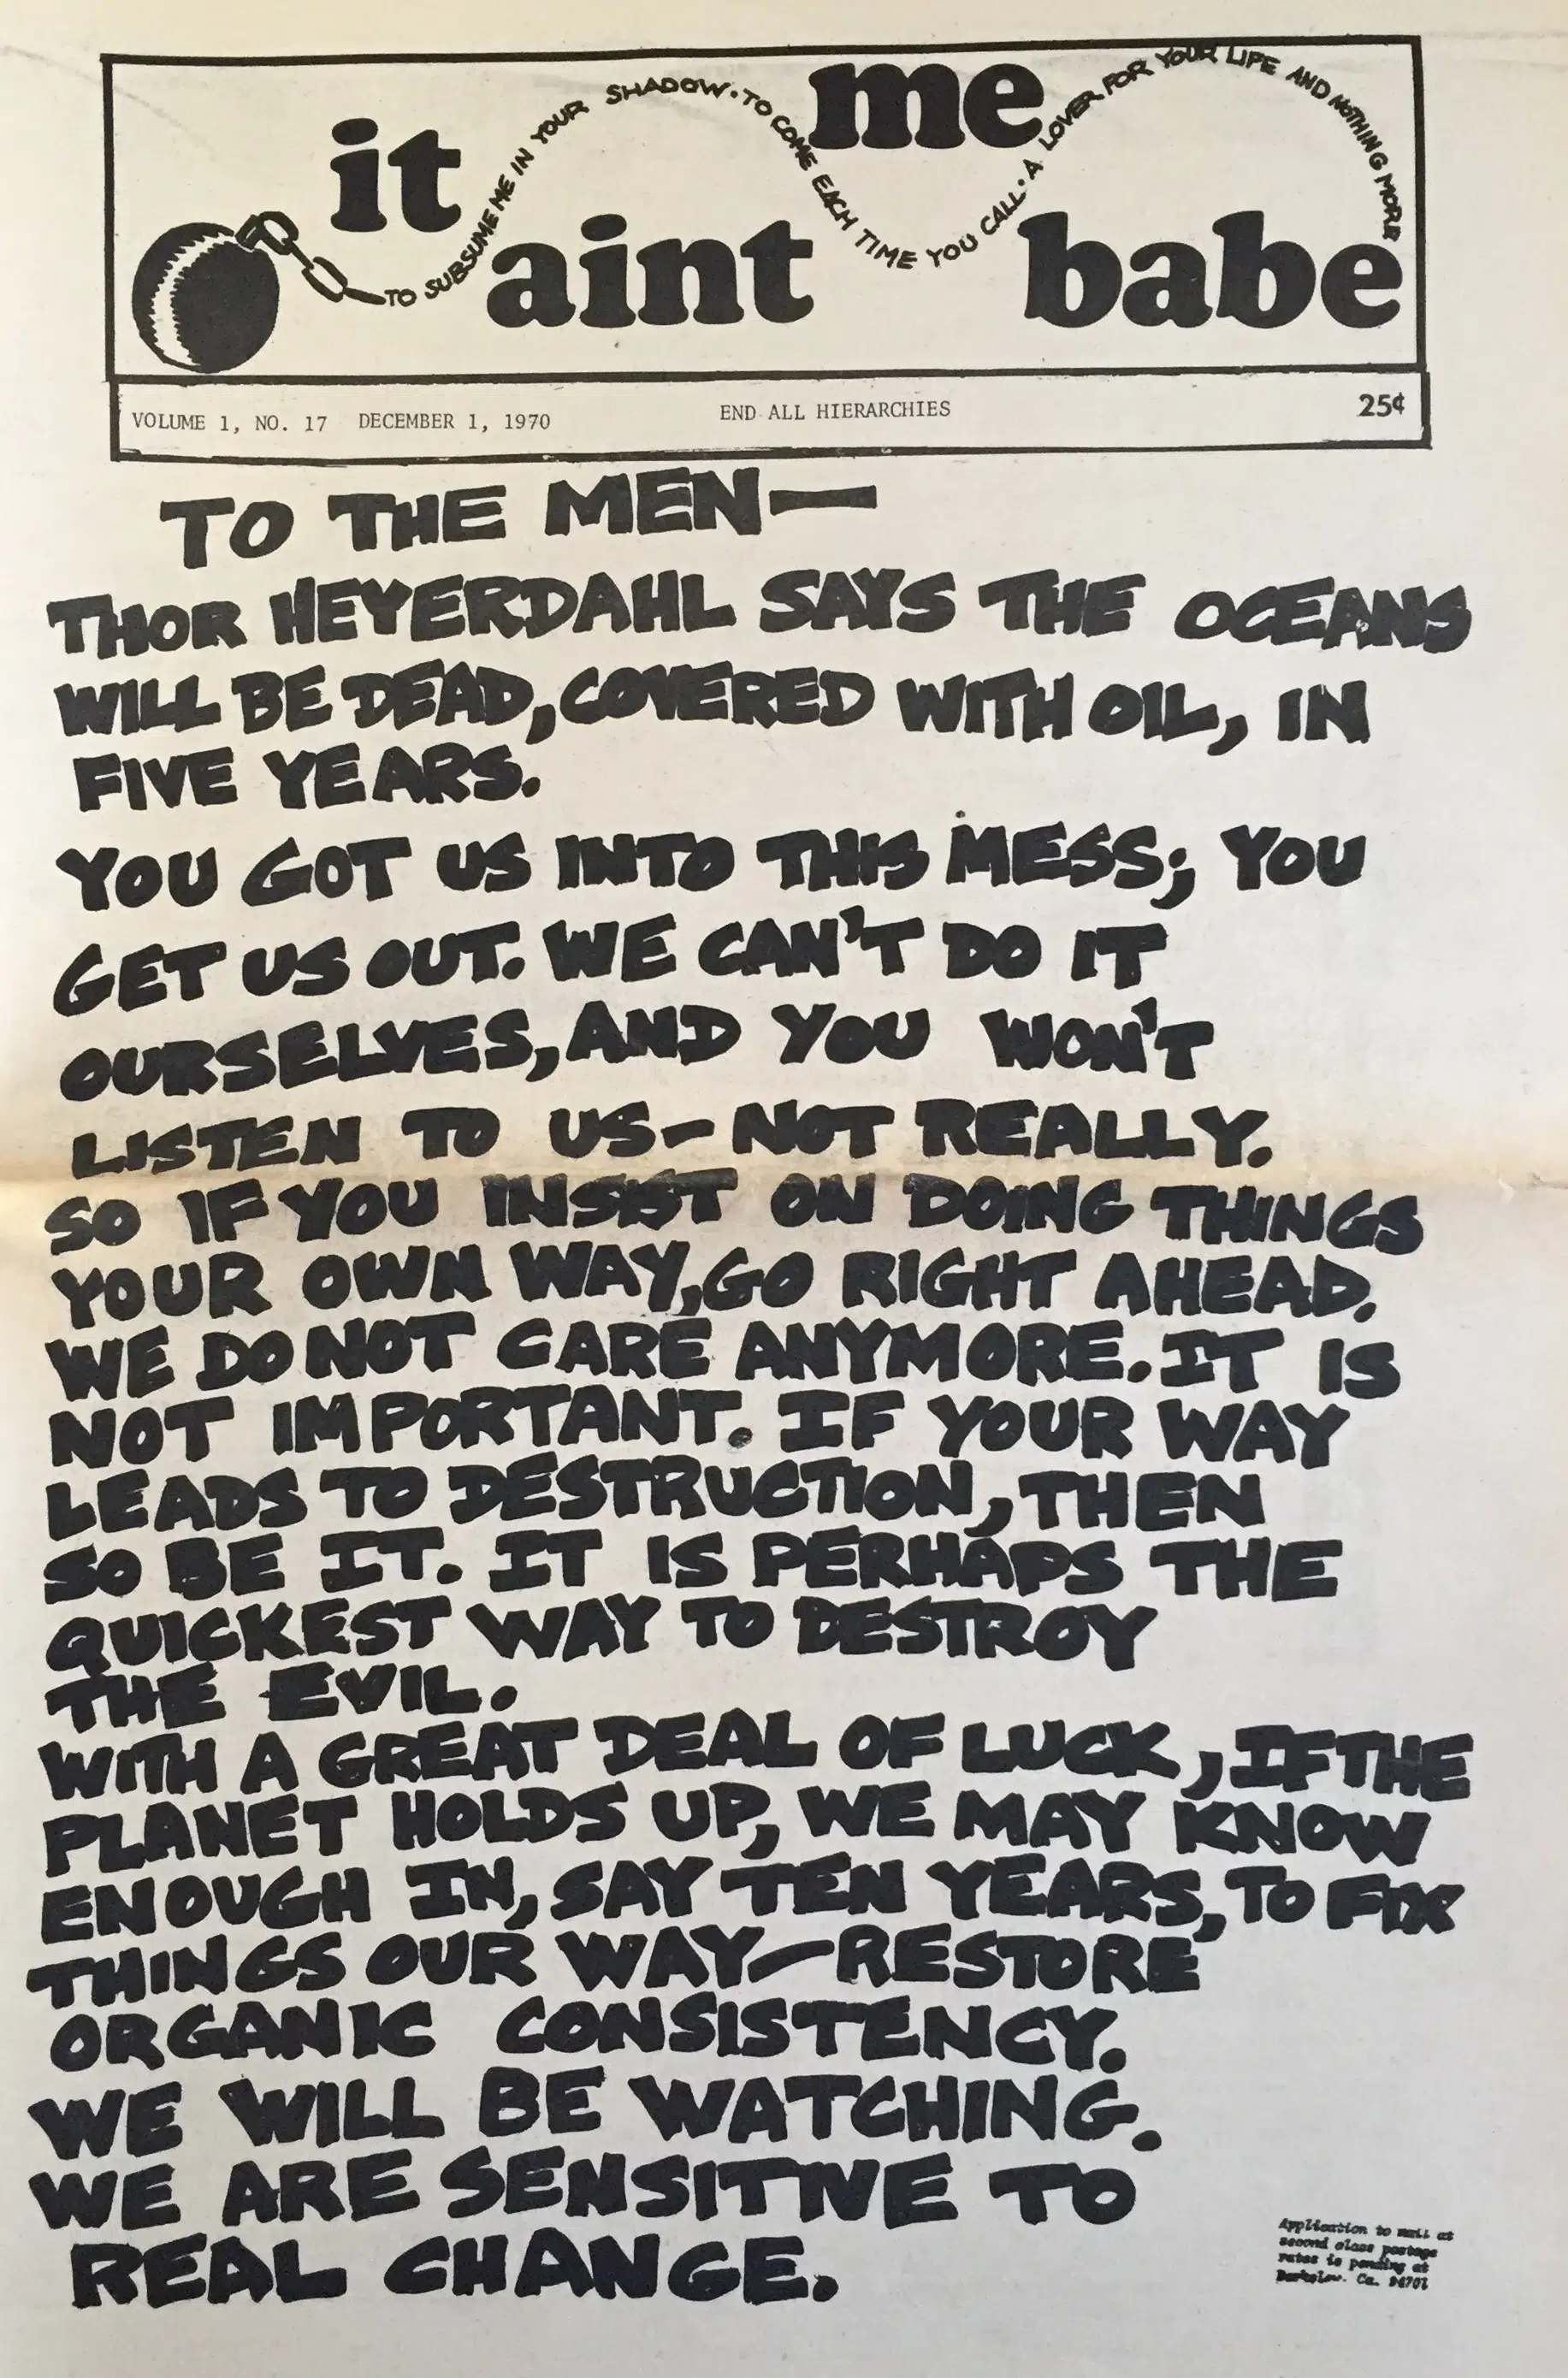 it aint me babe
TO SUBSUME ME IN YOUR SHADOW · TO COME EACH TIME YOU CALL · A LOVER FOR YOUR LIFE AND NOTHING MORE
VOLUME 1, NO. 17 DECEMBER 1, 1970 END ALL HIERARCHIES 25¢
TO THE MEN—
THOR HEYERDAHL SAYS THE OCEANS
WILL BE DEAD, COVERED WITH OIL, IN
FIVE YEARS.
YOU GOT US INTO THIS MESS; YOU
GET US OUT. WE CAN'T DO IT
OURSELVES, AND YOU WON'T
LISTEN TO US – NOT REALLY.
SO IF YOU INSIST ON DOING THINGS
YOUR OWN WAY, GO RIGHT AHEAD.
WE DO NOT CARE ANYMORE. IT IS
NOT IMPORTANT. IF YOUR WAY
LEADS TO DESTRUCTION, THEN
SO BE IT. IT IS PERHAPS THE
QUICKEST WAY TO DESTROY
THE EVIL.
WITH A GREAT DEAL OF LUCK, IF THE
PLANET HOLDS UP, WE MAY KNOW
ENOUGH IN, SAY TEN YEARS, TO FIX
THINGS OUR WAY—RESTORE
ORGANIC CONSISTENCY.
WE WILL BE WATCHING.
WE ARE SENSITIVE TO
REAL CHANGE.
Application to mail at
second class postage
rates is pending at
Berkeley, Ca. 94701